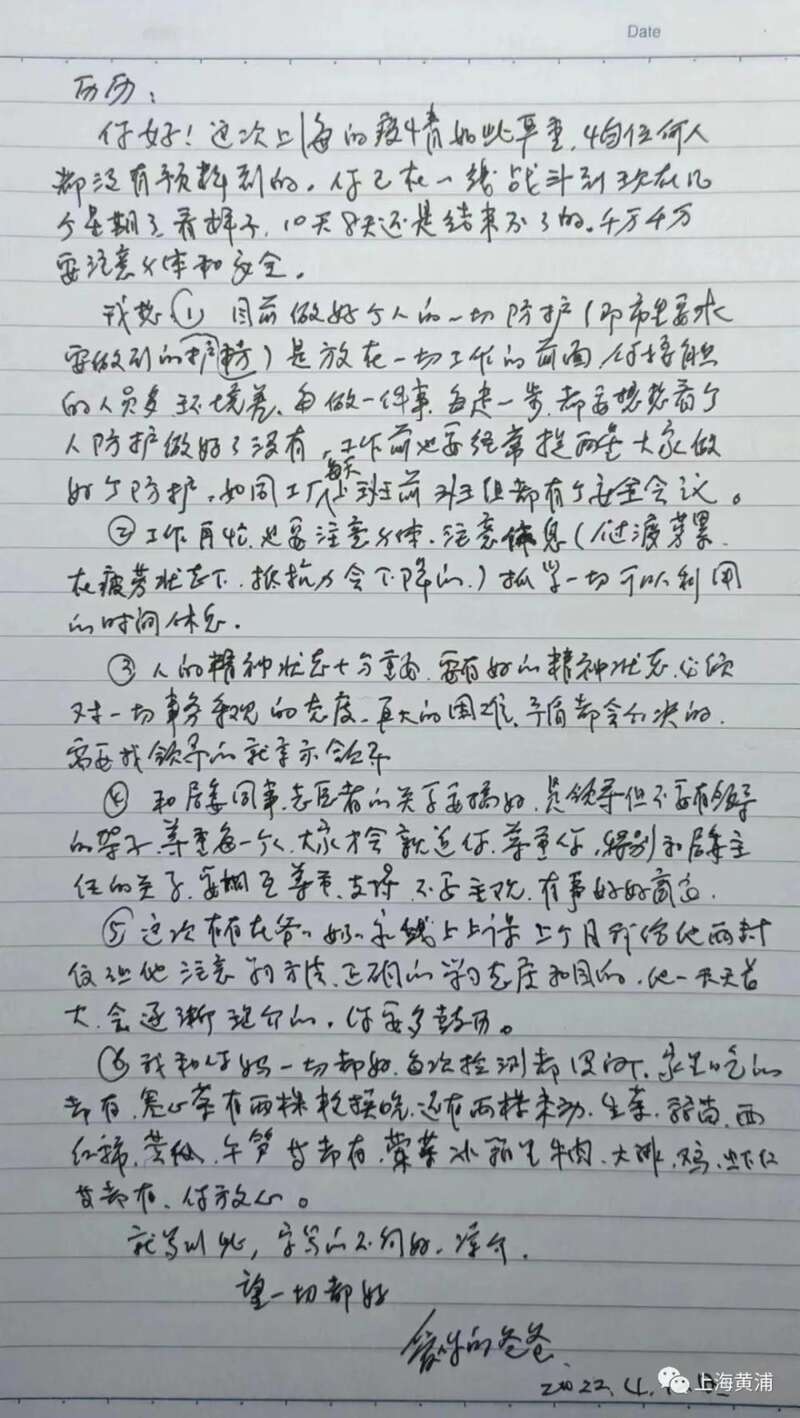 Date
历历：
你好！这次上海的疫情如此严重，怕任何人
都没有预料到的。你已在一线战斗到现在几
个星期了，看样子，10天8天还是结束不了的。千万千万
要注意身体和安全。
我想①目前做好个人的一切防护（即市里要求
要做到的护防）是放在一切工作的前面，你接触
的人员多环境差、每做一件事，每走一步，都要想想看个
人防护做好了没有，工作前也要经常提醒大家做
好个防护，如同工厂每天上班前班组都有个安全会议。
②工作再忙，也要注意身体，注意休息（过渡劳累
在疲劳状态下，抵抗力会下降的。）抓紧一切可以利用
的时间休息。
③人的精神状态十分重要，要有好的精神状态，必须
对一切事务乐观的态度，再大的困难、矛盾都会解决的，
需要找领导的就请示领导
④和居委同事，志愿者的关系要搞好，是领导但不要有领导
的架子，尊重每一个人，大家才会亲近你，尊重你，特别和居委主
任的关系，要相互尊重、支持，不要主观，有事好好商量。
⑤这次 在爷爷奶奶家线上上课，上个月我给他两封
信，让他注意学习方法、正确的学习态度和目的，他一天天长
大，会逐渐 的，你要多鼓励。
⑥我和你妈一切都好，每次检测都没问题，家里吃的
都有，卷心菜有两棵 ，还有两棵 ，生菜， ，西
红柿， ，午笋皆都有，荤菜冰箱里牛肉、大排、鸡、虾仁
皆都有，你放心。
就写到此，字写的不何好，谅解。
望一切都好
爱你的爸爸
2022.4.
上海黄浦